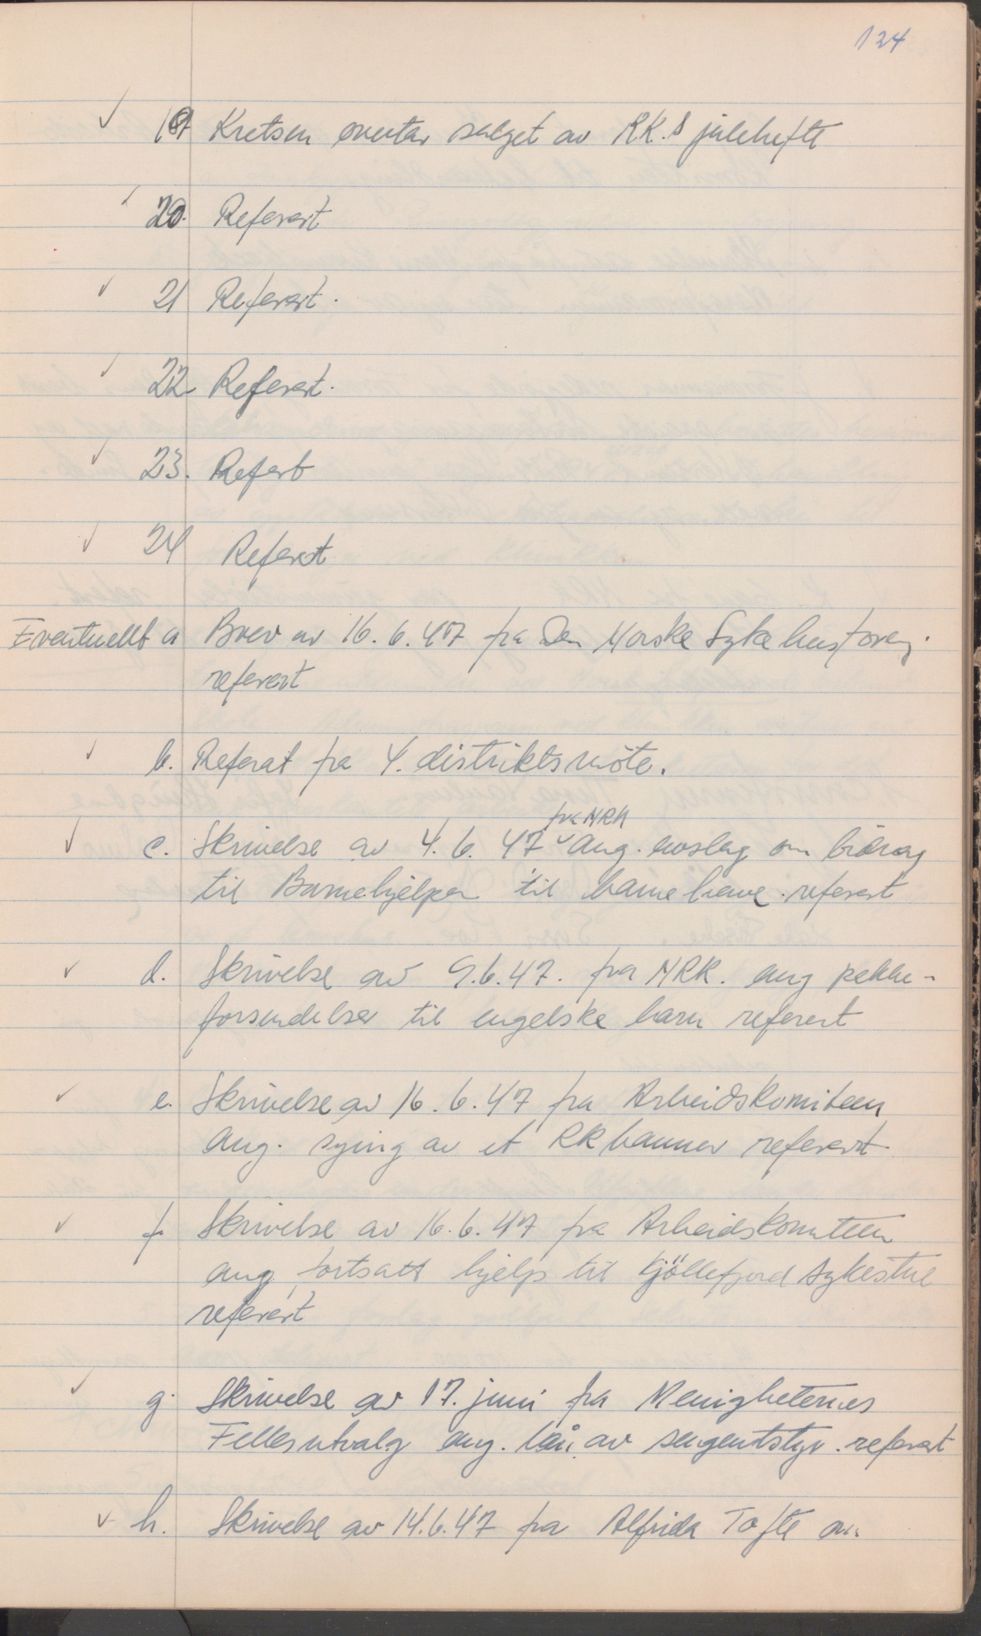 124
19 Kretsen overtar salget av RK.s julehefte
20. Referert
21 Referert.
22 Referert.
23. Refert
24 Referert
Eventuellt a Brev av 16.6.47 fra Den Norske Sykehusforeg.
referert
b. Referat fra 4. distriktsmöte.
fra NRK
c. Skrivelse av 4.6.47 ang. avslag om bidrag
til Barnehjelpen til barnehave. referert
d. Skrivelse av 9.6.47. fra NRK. ang pakke-
forsendelser til engelske barn referert
e. Skrivelse av 16.6.47 fra Arbeidskomiteen
ang. sying av et RK banner referert
f. Skrivelse av 16.6.47 fra Arbeidskomiteen
ang fortsatt hjelp til Kjöllefjord sykestue
referert
g. Skrivelse av 17. juni fra Menigheternes
Fellesutvalg ang. lån av sengeutstyr. referert
h. Skrivelse av 14.6.47 fra Alfrida Tofte om